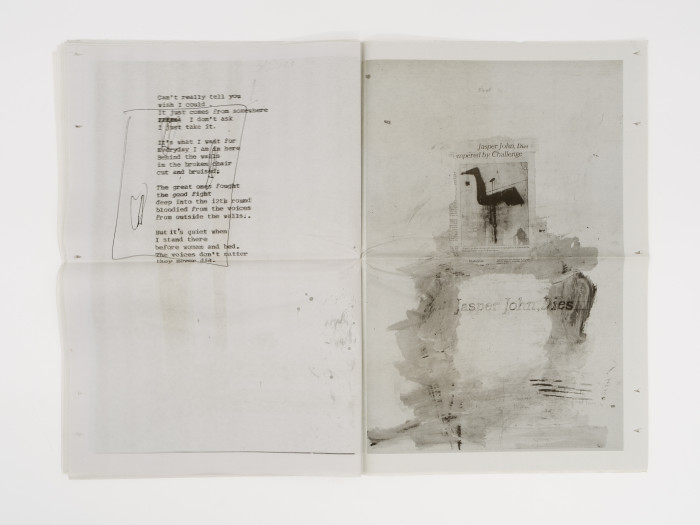 Can't really tell you
wish I could.
It just comes from somewhere
I don't ask
I just take it.
It's what I wait for
Everyday I am in here
Behind the walls
in the broken chair
cut and bruised.
The great ones fought
the good fight
deep into the 10th round
bloodied from the voices
from outside the walls.
But it's quiet when
I stand there
before woman and bed.
The voices don't matter
they never did.
Jasper John, Dies
Inspired by Challenge
Jasper John, Dies